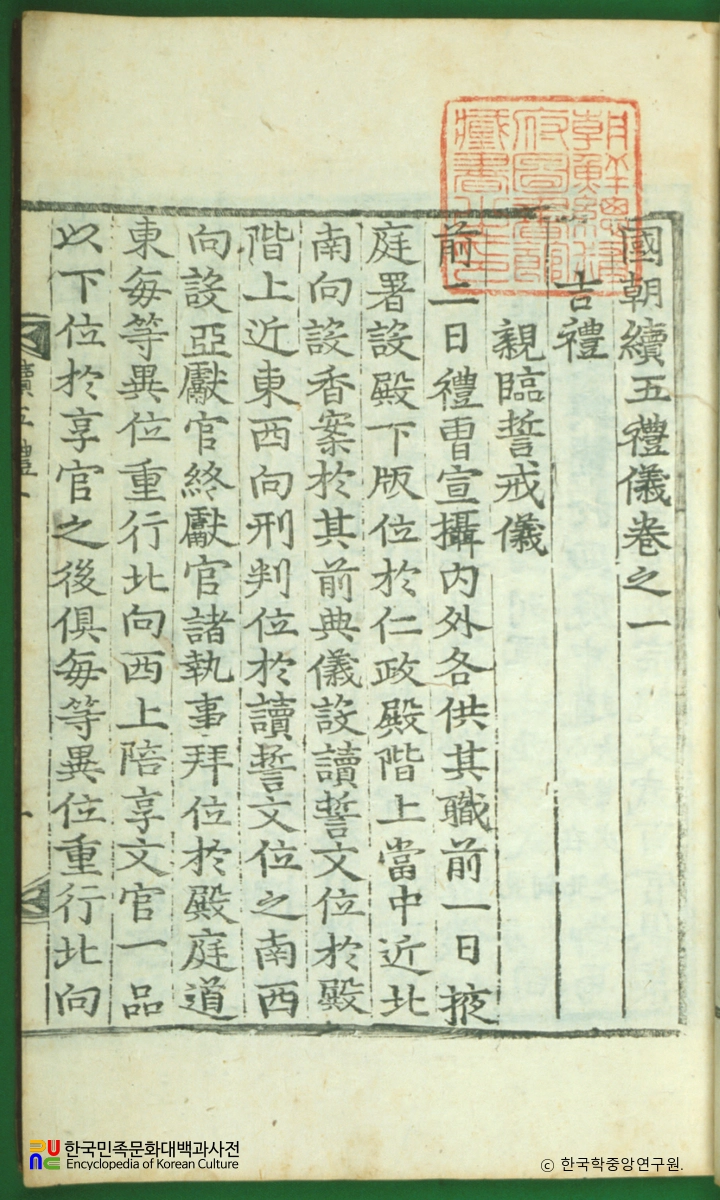 國朝續五禮儀卷之一
吉禮
親臨誓戒儀
前二日禮曹宣攝內外各供其職前一日掖
庭署設殿下版位於仁政殿階上當中近北
南向設香案於其前典儀設讀誓文位於殿
階上近東西向刑判位於讀誓文位之南西
向設亞獻官終獻官諸執事拜位於殿庭道
東每等異位重行北向西上陪享文官一品
以下位於享官之後俱每等異位重行北向
續五禮一
朝鮮總督
府圖書館
藏書之印
한국민족문화대백과사전
Encyclopedia of Korean Culture
© 한국학중앙연구원.